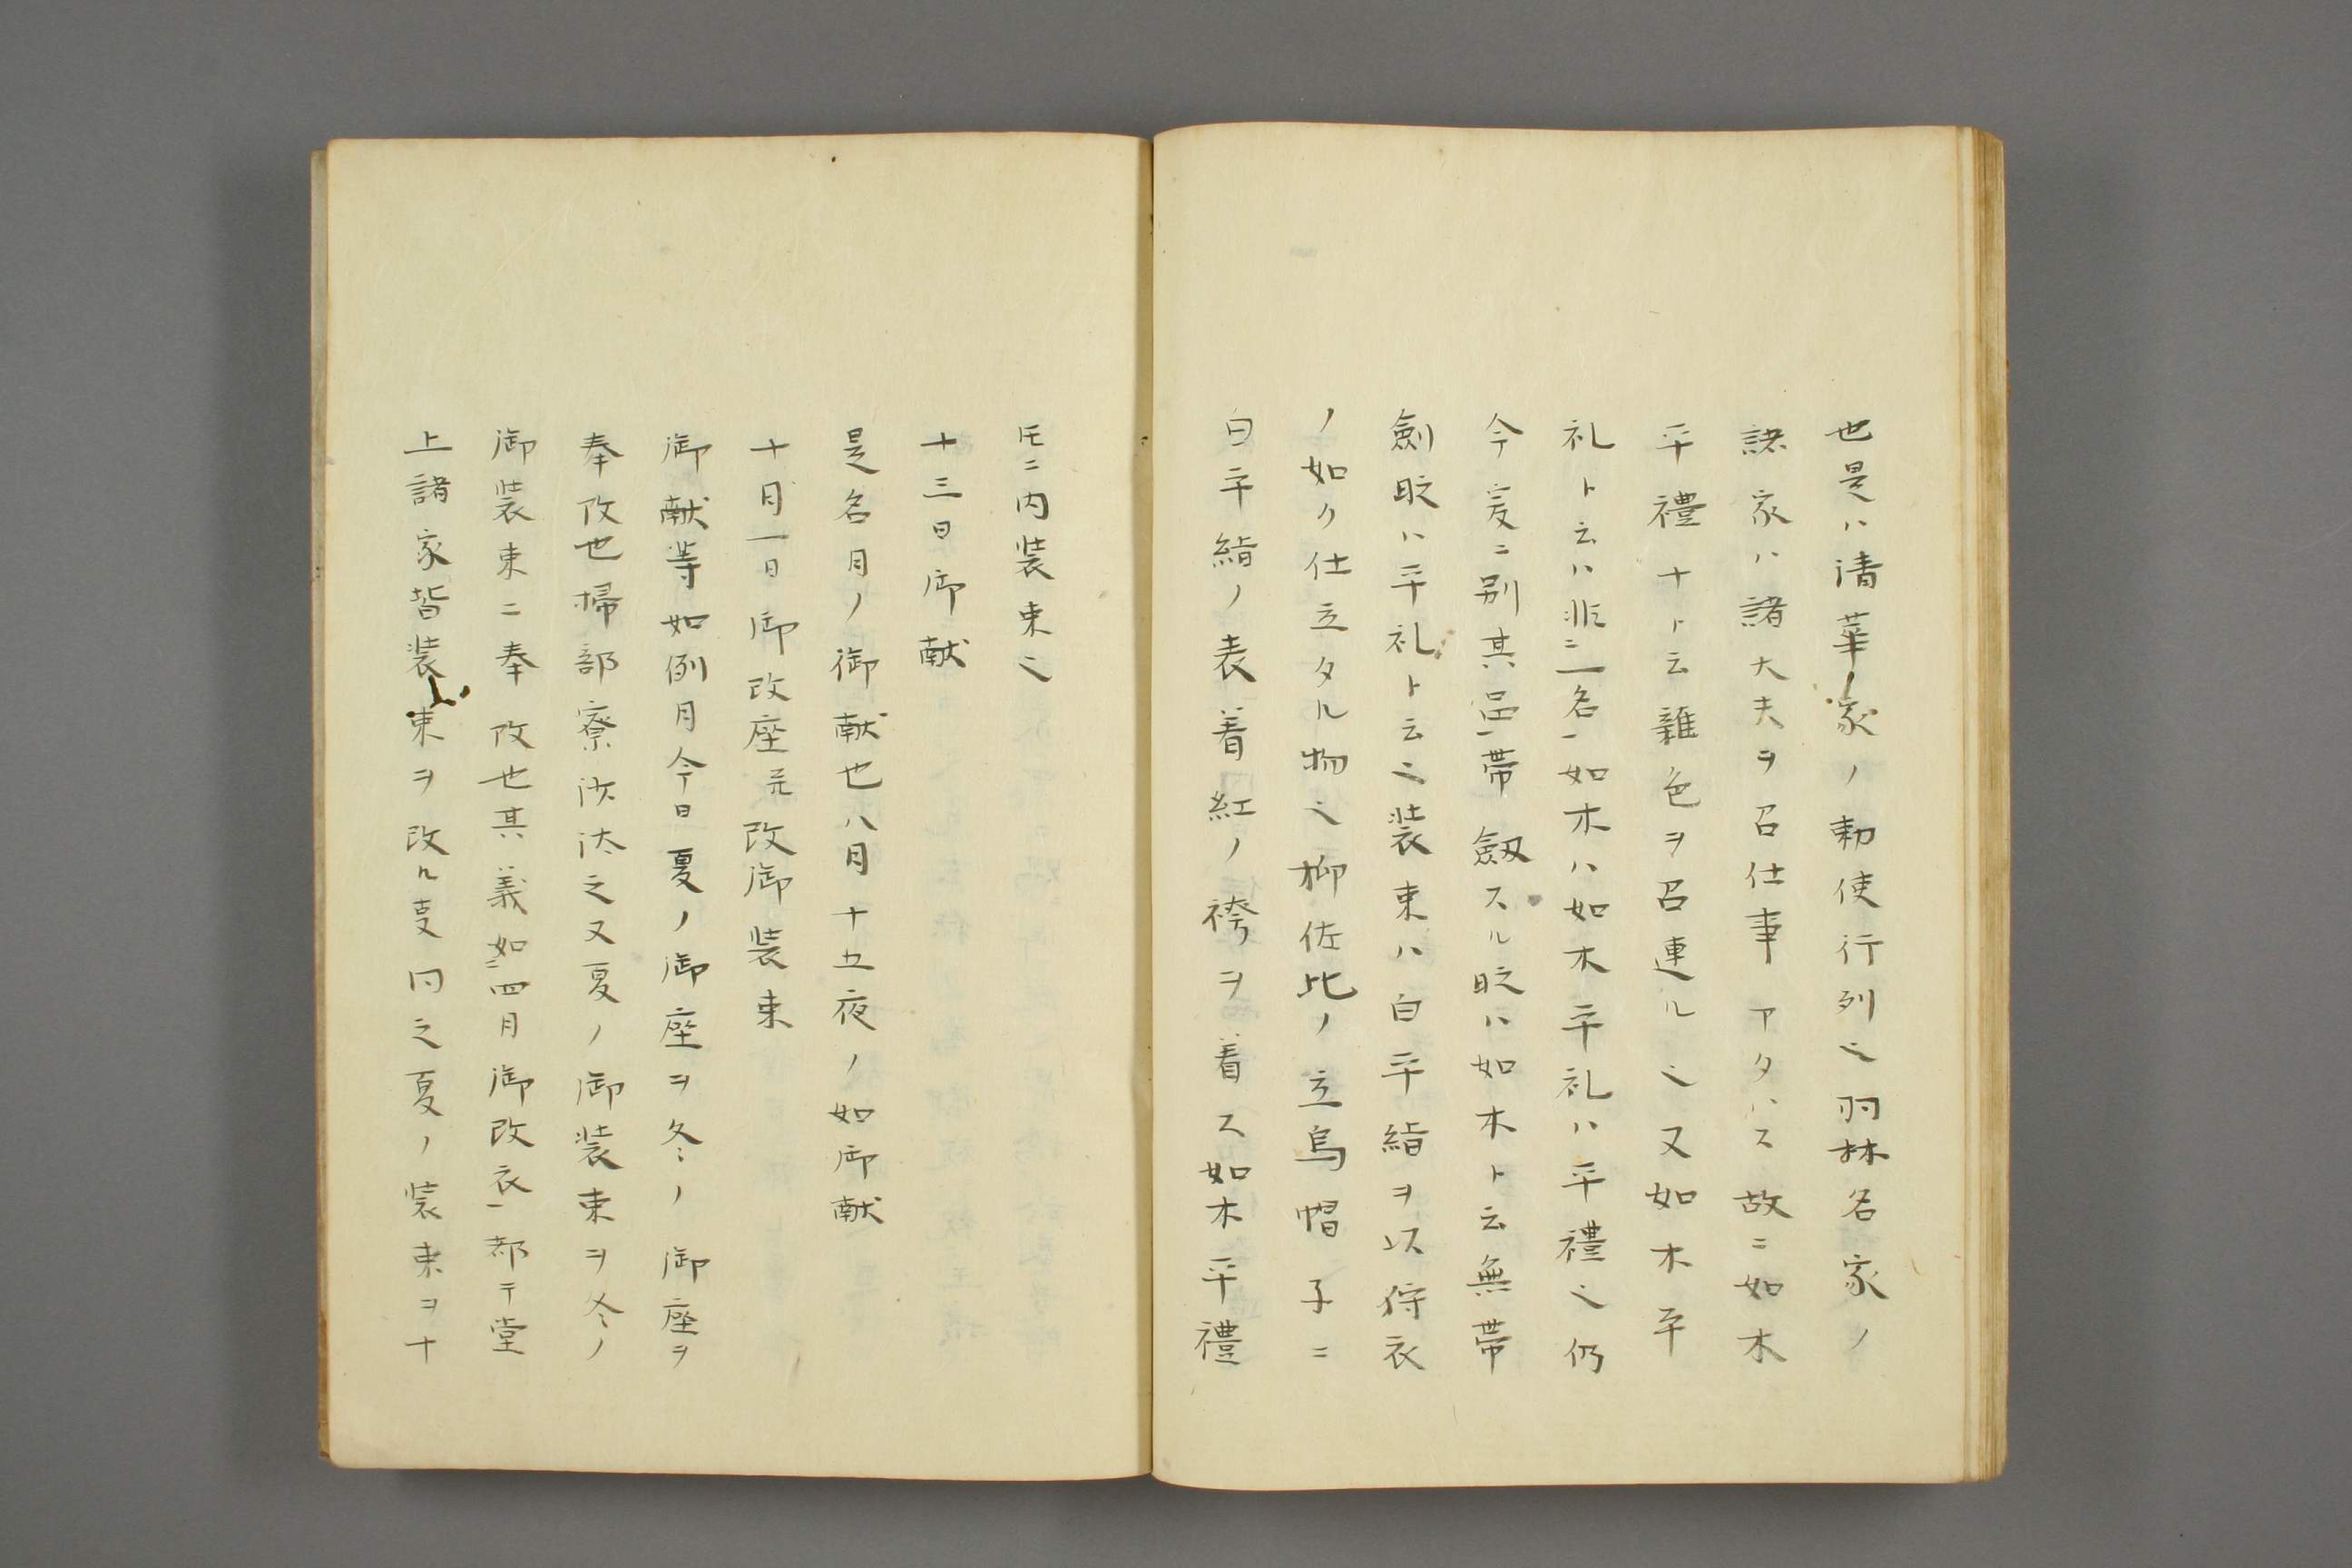 也是ハ清華家ノ勅使行列之羽林名家ノ
諸家ハ諸大夫ヲ召仕事アタハス故ニ如木
平禮ナト云雜色ヲ召連ル之又如木平
礼ト云ハ非ニ二名一如木ハ如木平礼ハ平禮之仍
今爰ニ別其品一帯劔スル時ハ如木ト云無帯
劍時ハ平礼ト云之装束ハ白平絹ヲ以狩衣
ノ如ク仕立タル物之柳佐比ノ立烏帽子ニ
白平絹ノ表着同紅ノ袴ヲ着ス如木平禮
トモニ内装束之
十三日御献
是名月ノ御献也八月十五夜ノ如御献
十月一日御改座并改御装束
御献等如例月今日夏ノ御座ヲ冬ノ御座ヲ
奉改也掃部寮沙汰之又夏ノ御装束ヲ冬ノ
御装束ニ奉改也其義如ニ四月御改衣一都テ堂
上諸家皆装束ヲ改ル叓同之夏ノ装束ヲ十